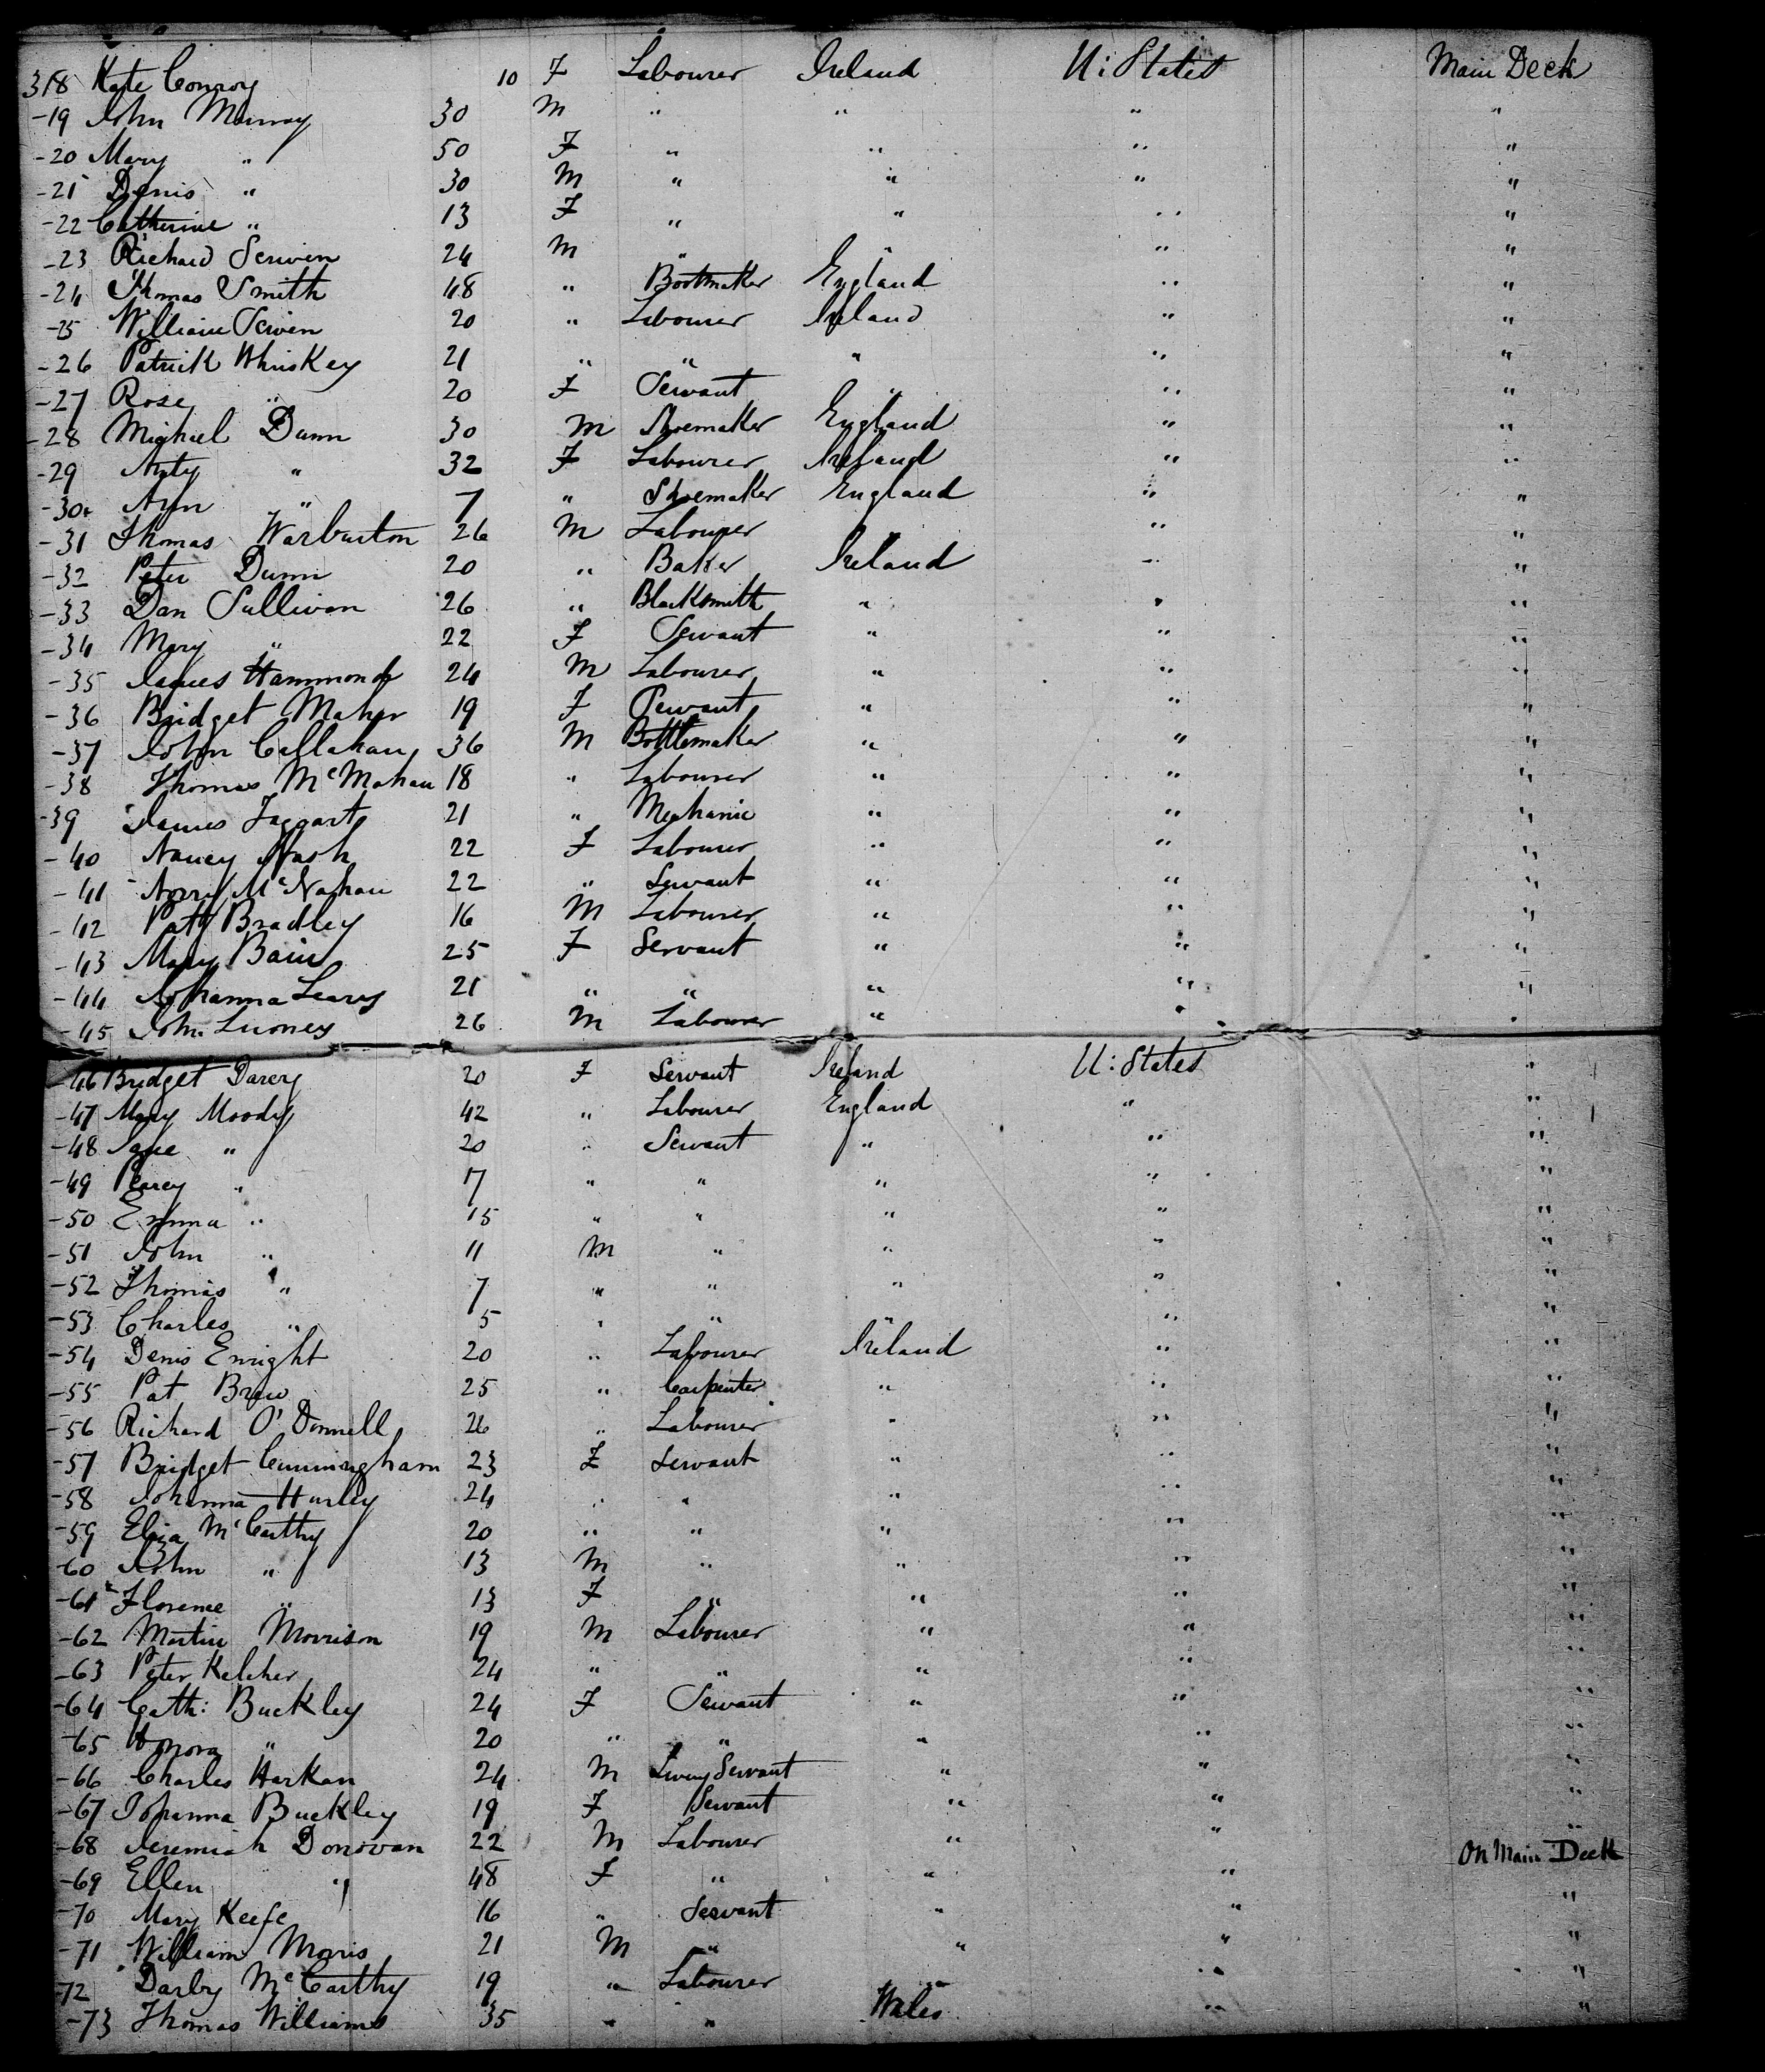 318 Kate Conroy 10 F Labourer Ireland U: States Main Deck
-19 John Murray 30 M " " " "
-20 Mary " 50 F " " " "
-21 Denis " 30 M " " " "
-22 Catherine " 13 F " " " "
-23 Richard Scriven 24 M " " " "
-24 Thomas Smith 48 " Bootmaker England " "
-25 William Scriven 20 " Labourer Ireland " "
-26 Patrick Whiskey 21 " " " " "
-27 Rose " 20 F Servant " " "
-28 Michael Dunn 30 M Shoemaker England " "
-29 Anty " 32 F Labourer Ireland " "
-30 Ann " 7 " Shoemaker England " "
-31 Thomas Warburton 26 M Labourer " " "
-32 Peter Dunn 20 " Baker Ireland " "
-33 Dan Sullivan 26 " Blacksmith " " "
-34 Mary " 22 F Servant " " "
-35 James Hammond 24 M Labourer " " "
-36 Bridget Maher 19 F Servant " " "
-37 John Callahan 36 M Bottlemaker " " "
-38 Thomas McMahan 18 " Labourer " " "
-39 James Taggart 21 " Mechanic " " "
-40 Nancy Nash 22 F Labourer " " "
-41 Norry McNahan 22 " Servant " " "
-42 Patt Bradley 16 M Labourer " " "
-43 Mary Bain 25 F Servant " " "
-44 Johanna Leary 21 " " " " "
-45 John Luoney 26 M Labourer " " "
-46 Bridget Darcy 20 F Servant Ireland U: States "
-47 Mary Moody 42 " Labourer England " "
-48 Jane " 20 " Servant " " "
-49 Percy " 17 " " " " "
-50 Emma " 15 " " " " "
-51 John " 11 M " " " "
-52 Thomas " 7 " " " " "
-53 Charles " 5 " " " "
-54 Denis Enright 20 " Labourer Ireland " "
-55 Pat Brew 25 " Carpenter " " "
-56 Richard O'Donnell 26 " Labourer " " "
-57 Bridget Cunningham 23 F Servant " " "
-58 Johanna Hurley 24 " " " " "
-59 Eliza McCarthy 20 " " " " "
-60 John " 13 M " " " "
-61 Florence " 13 F " " " "
-62 Martin Morrison 19 M Labourer " " "
-63 Peter Kelcher 24 " " " " "
-64 Cath: Buckley 24 F Servant " " "
-65 Honora " 20 " " " " "
-66 Charles Harkan 24 M Livery Servant " " "
-67 Johanna Buckley 19 F Servant " " "
-68 Jeremiah Donovan 22 M Labourer " " "
-69 Ellen " 48 F " " " On Main Deck
-70 Mary Keefe 16 " Servant " " "
-71 William Morris 21 M " " " "
-72 Darby McCarthy 19 " Labourer " " "
-73 Thomas Williams 35 " " Wales " "